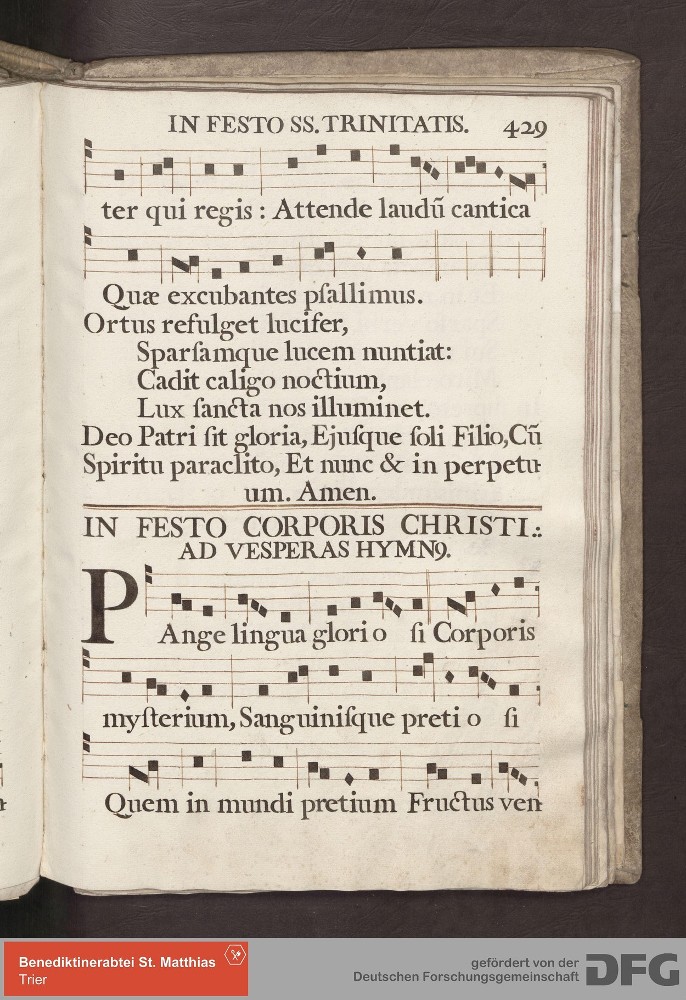 IN FESTO SS. TRINITATIS. 429
ter qui regis : Attende laudũ cantica
Quæ excubantes pſallimus.
Ortus refulget lucifer,
Sparſamque lucem nuntiat:
Cadit caligo noctium,
Lux ſancta nos illuminet.
Deo Patri ſit gloria, Ejuſque ſoli Filio, Cũ
Spiritu paraclito, Et nunc & in perpetu-
um. Amen.
IN FESTO CORPORIS CHRISTI.:
AD VESPERAS HYMN9.
PAnge lingua glori o ſi Corporis
myſterium, Sanguiniſque preti o ſi
Quem in mundi pretium Fructus ven-
Benediktinerabtei St. Matthias
Trier
gefördert von der
Deutschen Forschungsgemeinschaft
DFG